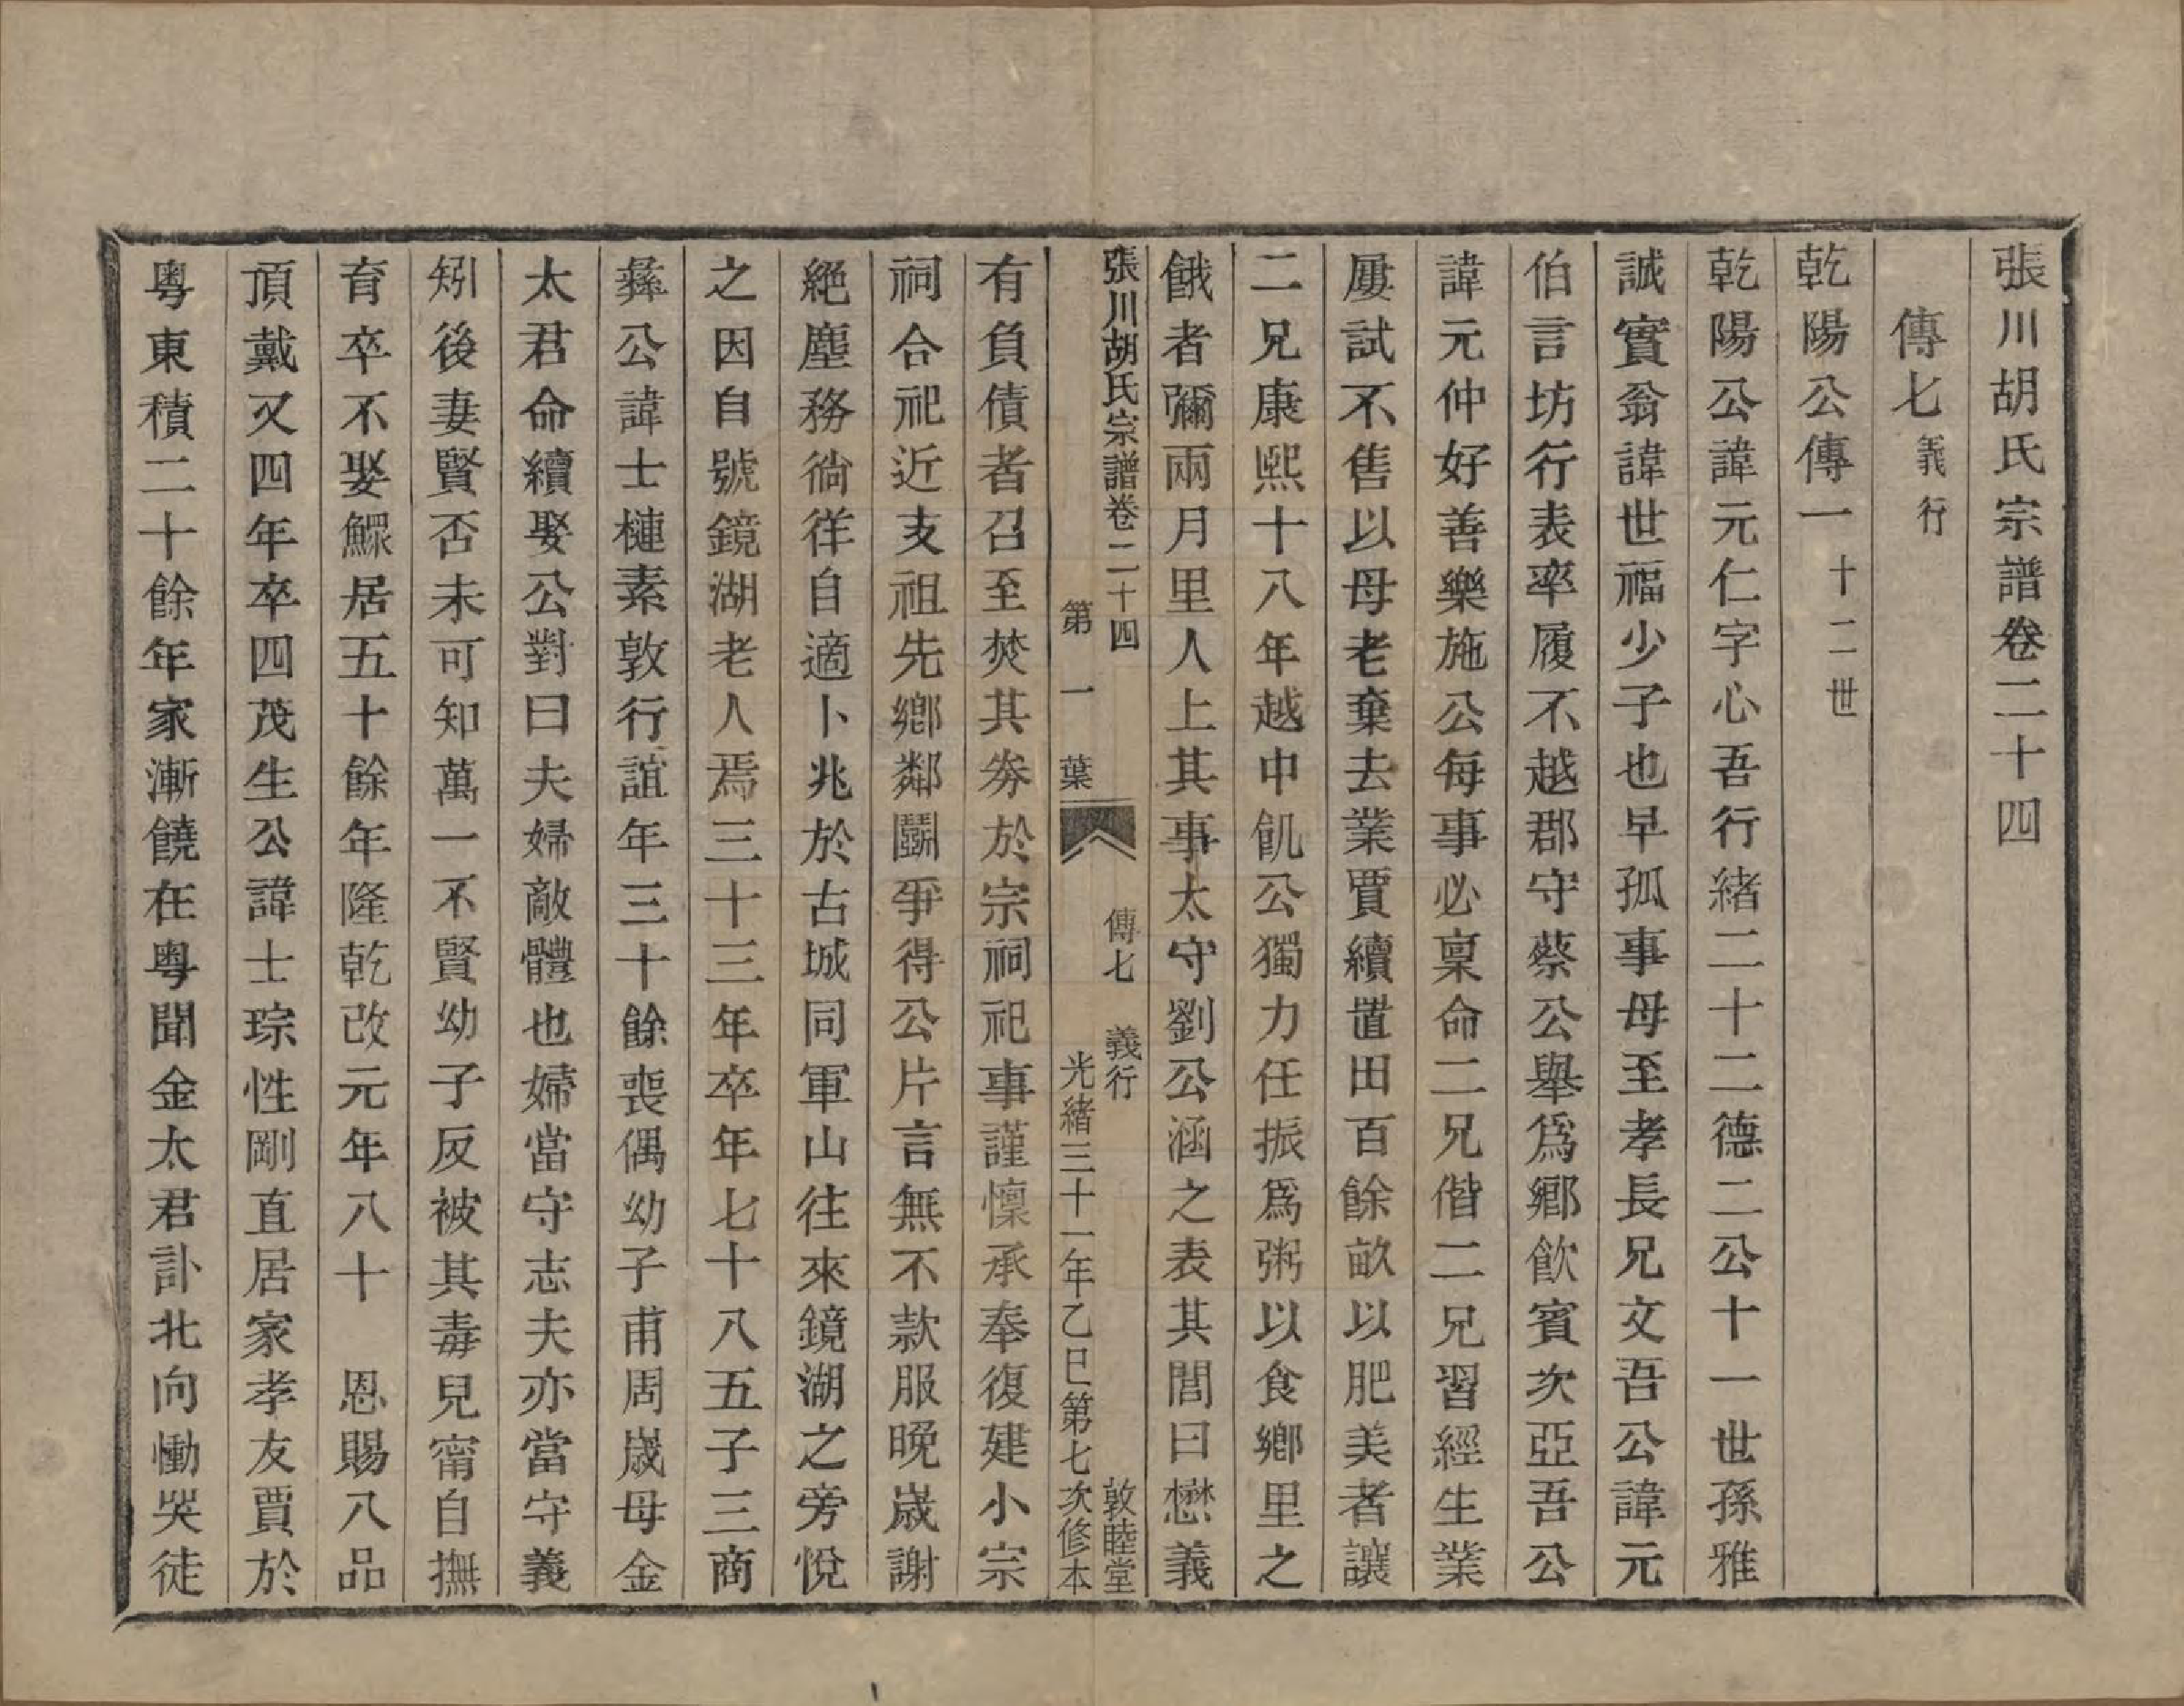 張川胡氏宗譜卷二十四
傳七義行
乾陽公傳一十二世
乾陽公諱元仁字心吾行緒二十二德二公十一世孫雅
誠實翁諱世福少子也早孤事母至孝長兄文吾公諱元
伯言坊行表率履不越郡守蔡公舉爲鄉飮賓次亞吾公
諱元仲好善樂施公每事必稟命二兄偕二兄習經生業
屢試不售以母老棄去業賈續置田百餘畝以肥美者讓
二兄康熙十八年越中飢公獨力任振爲粥以食鄉里之
餓者彌兩月里人上其事太守劉公涵之表其閭曰懋義
張川胡氏宗譜卷二十四 傳七 義行 敦睦堂
第一葉 光緒三十一年乙巳第七次修本
有負債者召至焚其券於宗祠祀事謹懍承奉復建小宗
祠合祀近支祖先鄉鄰鬭爭得公片言無不款服晚歲謝
絕塵務徜徉自適卜兆於古城同軍山往來鏡湖之旁悅
之因自號鏡湖老人焉三十三年卒年七十八五子三商
彝公諱士槤素敦行誼年三十餘喪偶幼子甫周歲母金
太君命續娶公對曰夫婦敵體也婦當守志夫亦當守義
矧後妻賢否未可知萬一不賢幼子反被其毒兒甯自撫
育卒不娶鰥居五十餘年隆乾改元年八十 恩賜八品
頂戴又四年卒四茂生公諱士琮性剛直居家孝友賈於
粵東積二十餘年家漸饒在粵聞金太君訃北向慟哭徒